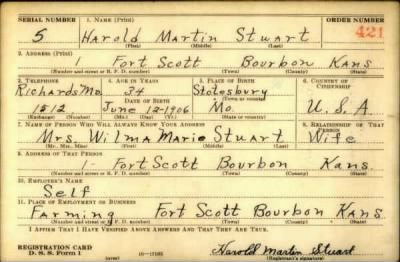 SERIAL NUMBER 1. NAME (Print) ORDER NUMBER
5 Harold Martin Stuart 421
(First) (Middle) (Last)
2. ADDRESS (Print)
1 Fort Scott Bourbon Kans
(Number and street or R. F. D. number) (Town) (County) (State)
3. TELEPHONE 4. AGE IN YEARS 5. PLACE OF BIRTH 6. COUNTRY OF CITIZENSHIP
Richards Mo. 34 Stotesbury
DATE OF BIRTH (Town or county)
1512 June 12-1906 Mo. U. S. A
(Exchange) (Number) (Mo.) (Day) (Yr.) (State or country)
7. NAME OF PERSON WHO WILL ALWAYS KNOW YOUR ADDRESS 8. RELATIONSHIP OF THAT PERSON
Mrs. Wilma Marie Stuart Wife
(Mr., Mrs., Miss) (First) (Middle) (Last)
9. ADDRESS OF THAT PERSON
1- Fort Scott Bourbon Kans.
(Number and street or R. F. D. number) (Town) (County) (State)
10. EMPLOYER'S NAME
Self
11. PLACE OF EMPLOYMENT OR BUSINESS
Farming Fort Scott Bourbon Kans
(Number and street or R. F. D. number) (Town) (County) (State)
I AFFIRM THAT I HAVE VERIFIED ABOVE ANSWERS AND THAT THEY ARE TRUE.
REGISTRATION CARD
D. S. S. Form 1 (over) Harold Martin Stuart
(Registrant's signature)